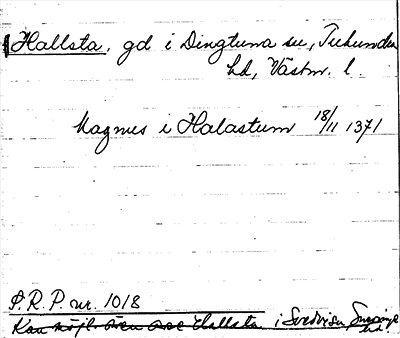 Hallsta, gd i Dingtuna sn, Tuhundra
hd, Västm. l.
Magnus i Halastum 18/11 1371
S.R.P. nr. 1018
Kan möjl. även avse Hallsta i Svedvi sn, Snevringe hd.